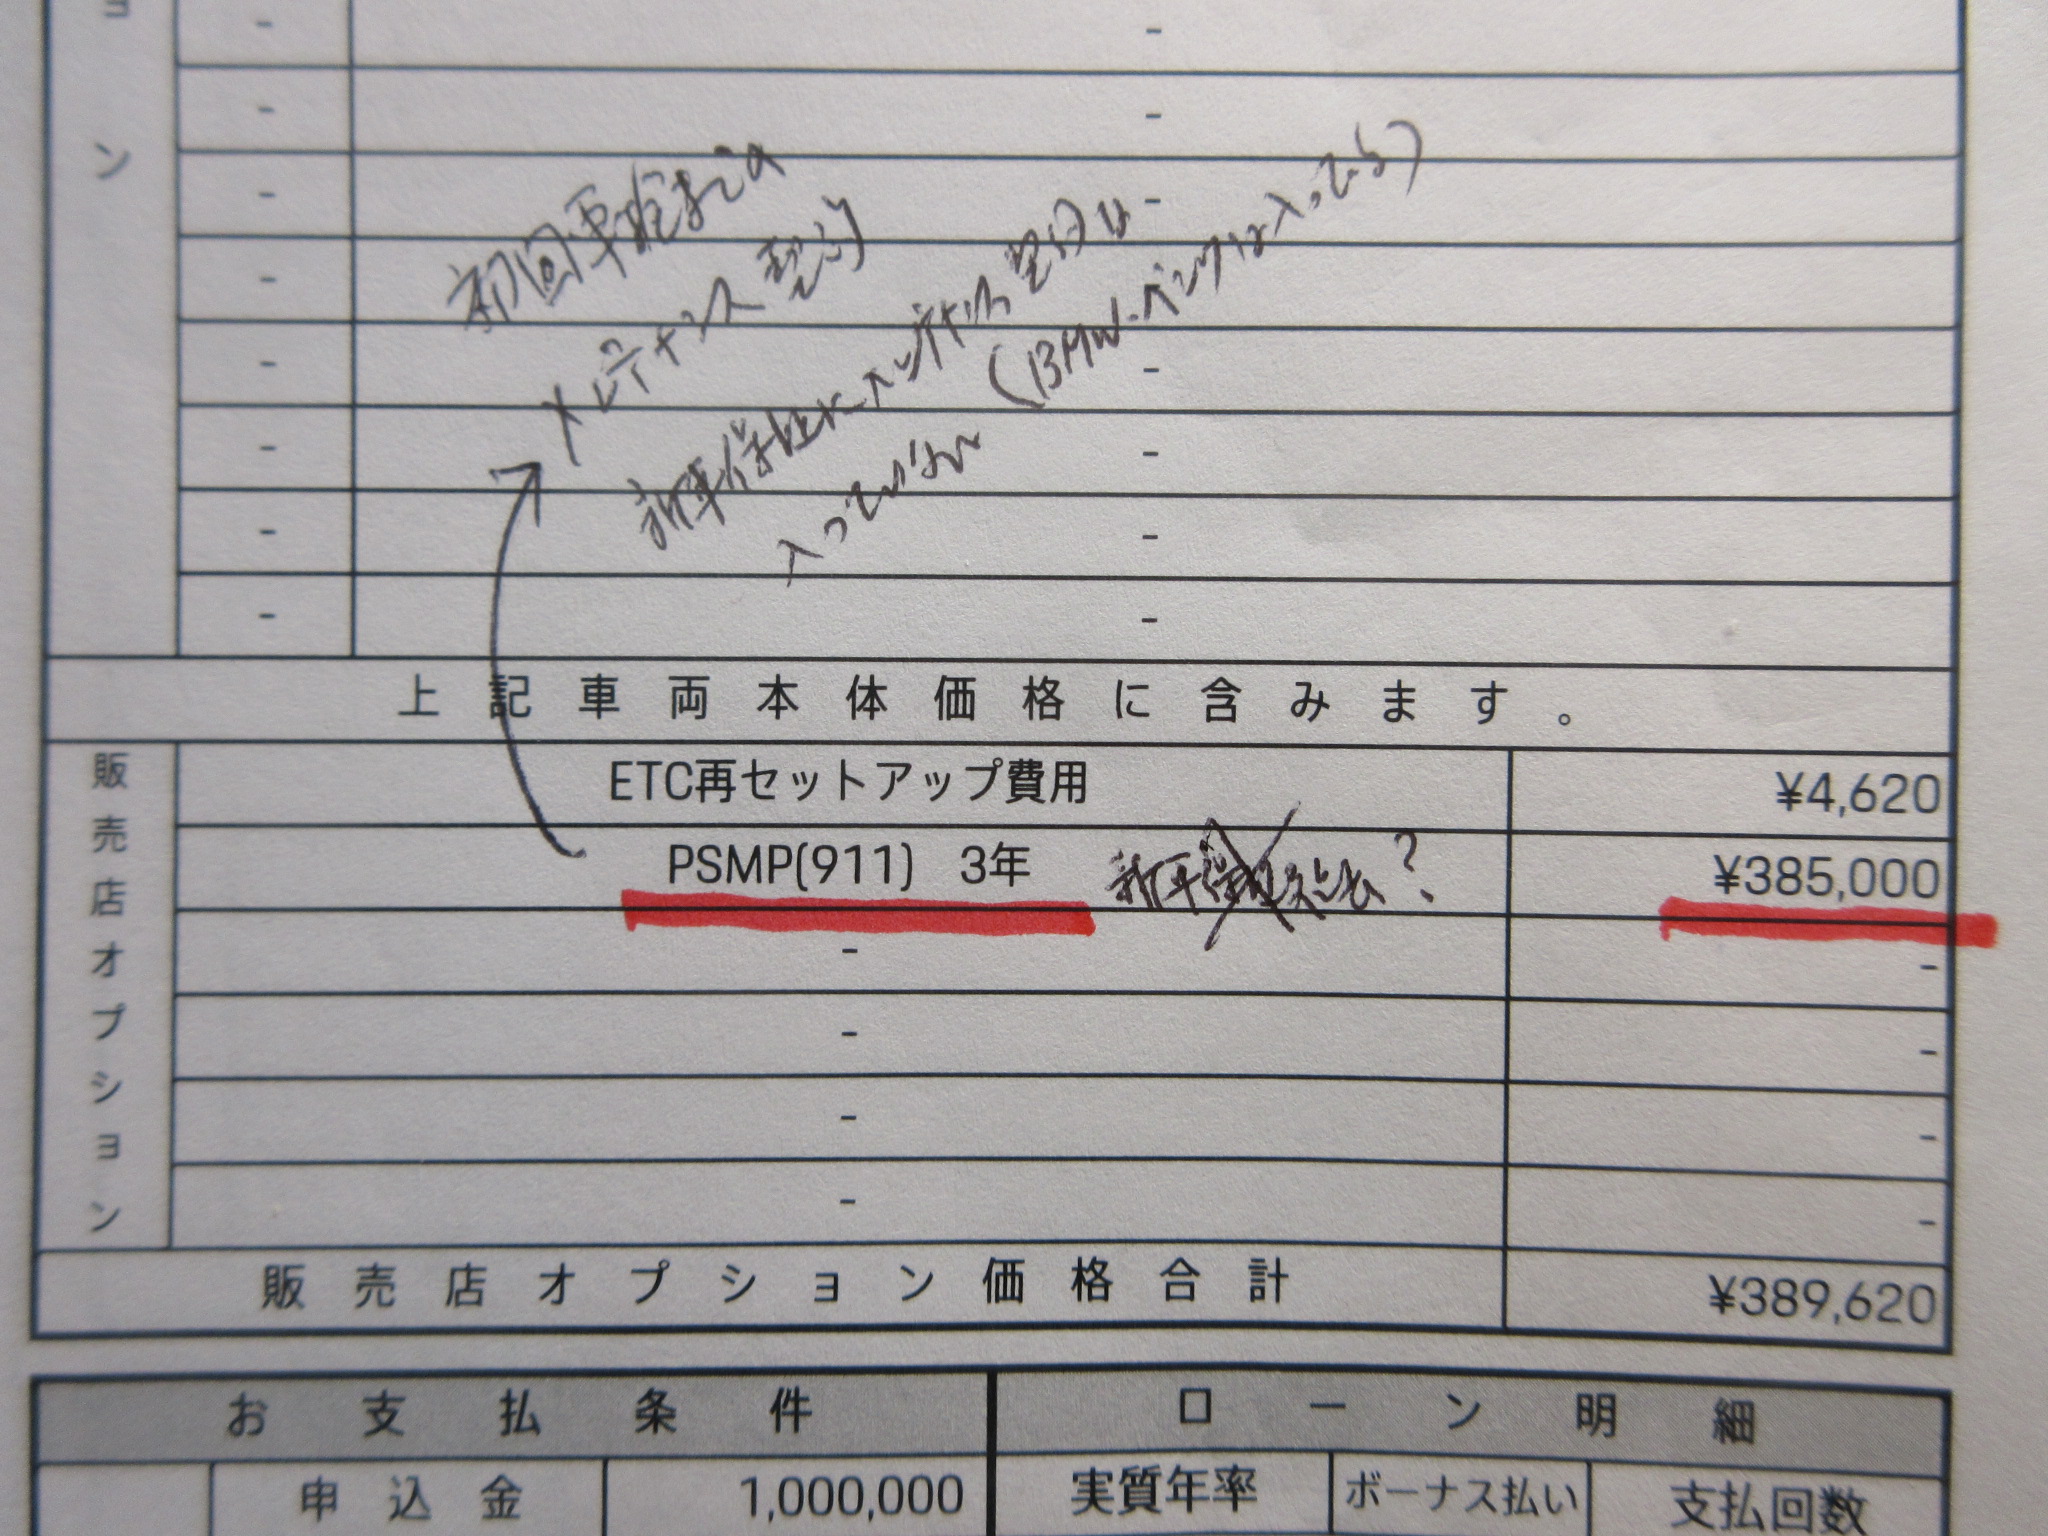 ョ
ン
初回車検までの
メンテナンス契約
新車保証にメンテナンス部分は
入っていない
(BMW・ベンツは入ってる)
上記車両本体価格に含みます。
販売店オプション
ETC再セットアップ費用 ¥4,620
PSMP(911) 3年 新車保証延長? ¥385,000
-
-
-
-
販売店オプション価格合計 ¥389,620
お支払条件 ローン明細
申込金 1,000,000 実質年率 ボーナス払い 支払回数